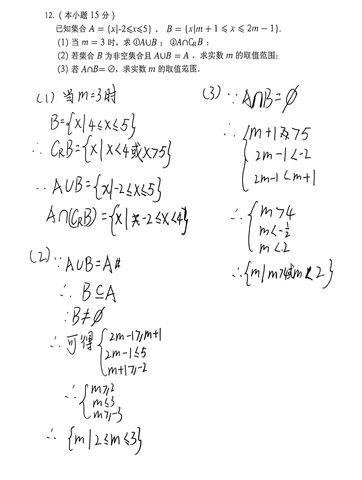 12.（本小题 15 分）
已知集合 A = {x|-2⩽x⩽5}， B = {x|m + 1 ⩽ x ⩽ 2m − 1}.
(1) 当 m = 3 时，求 ①A∪B； ②A∩C_RB；
(2) 若集合 B 为非空集合且 A∪B = A，求实数 m 的取值范围；
(3) 若 A∩B= ∅，求实数 m 的取值范围.
(1) 当m=3时
B={x|4≤x≤5}
∴ C_RB={x|x<4或x>5}
∴ A∪B={x|-2≤x≤5}
A∩(C_RB)={x|-2≤x<4}
(2) ∵ A∪B=A
∴ B⊆A
∵B≠∅
∴ 可得 { 2m-1≥m+1
2m-1≤5
m+1≥-2
∴ { m≥2
m≤3
m≥-3
∴ {m|2≤m≤3}
(3) ∵ A∩B=∅
∴ { m+1>5
2m-1<-2
2m-1<m+1
∴ { m>4
m<-1/2
m<2
∴{m|m>4或m<2}